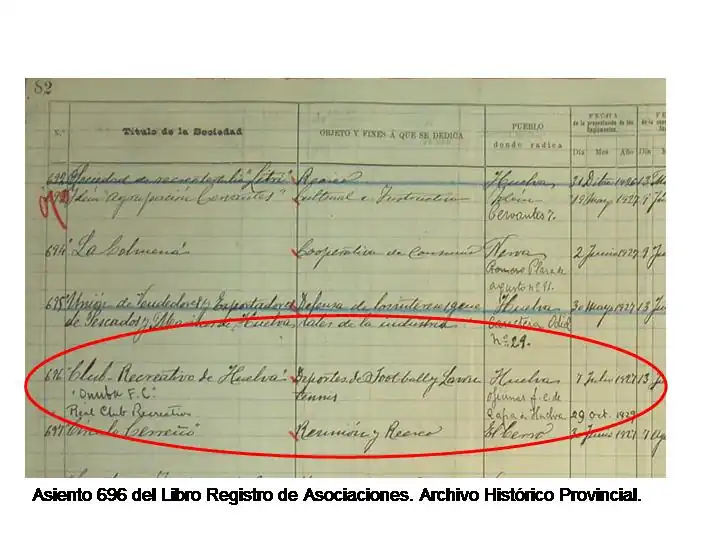 82
N.º Título de la Sociedad OBJETO Y FINES Á QUE SE DEDICA PUEBLO donde radica FECHA de la presentación de los Reglamentos. Día Mes Año Día
Sociedad de recreo Recreo Huelva 31 1926 13
Idem "Agrupación Cervantes" Cultural e Instructiva 1927
Cervantes 7.
694 "La Colmena" Cooperativa de Consumo Nerva 2 Junio 1927 9
Romero Plaza de
agosto nº 91.
695 Unión de Vendedores y Exportadores Defensa de los intereses gene Huelva 30 mayo 1927 13
de Pescados y Mariscos de Huelva rales de la industria. Carretera Odiel
nº 29.
696 "Club Recreativo de Huelva" Deportes de Football y Lawn Huelva 7 Julio 1927 13
"Onuba F.C." tennis
Real Club Recreativo Huelva 29 Oct. 1929
697 "Círculo Cerreño" Reunión y Recreo El Cerro 30 Junio 1927 7
Asiento 696 del Libro Registro de Asociaciones. Archivo Histórico Provincial.